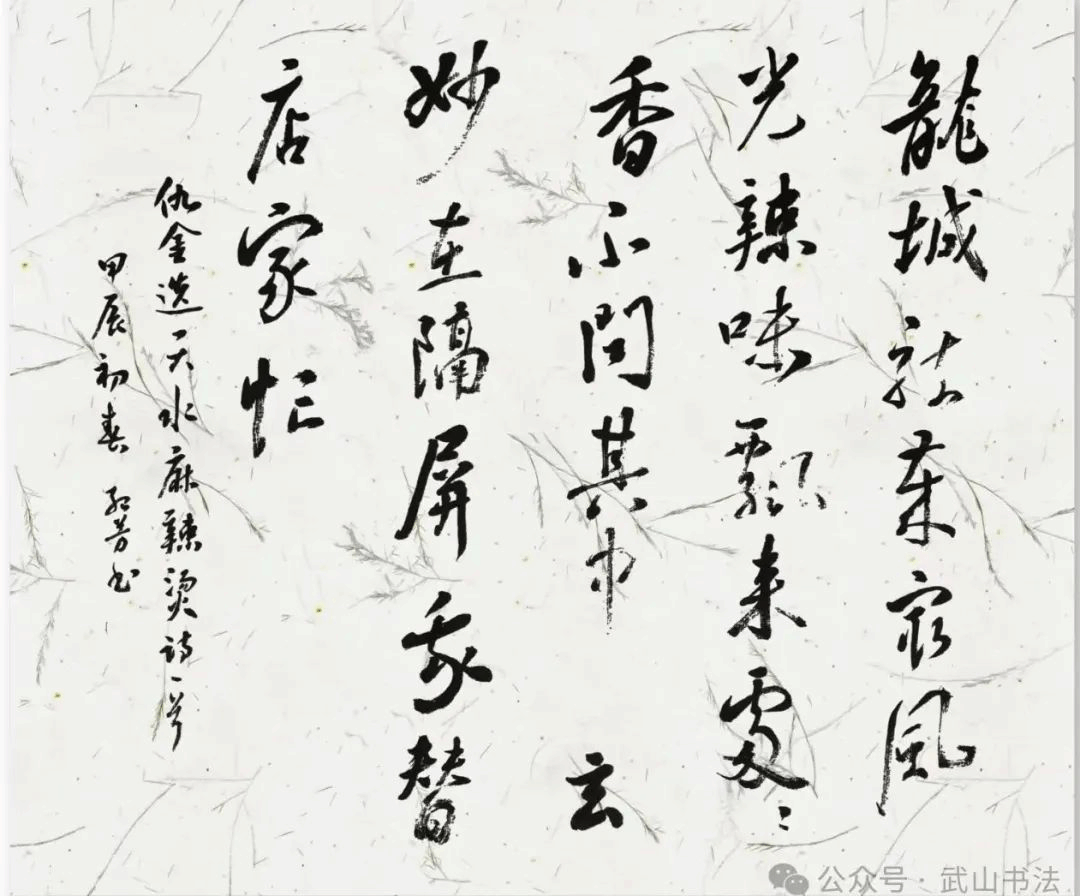 龍城最風
光辣味飄來處々
香不問其中玄
妙在隔屏我替
店家忙
仇金選天水麻辣燙詩一首
甲辰初春 紅芳書
公众号·武山书法